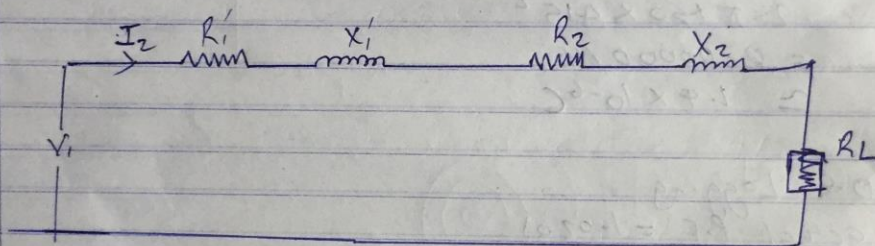 I₂ R₁' X₁' R₂ X₂
V₁
RL